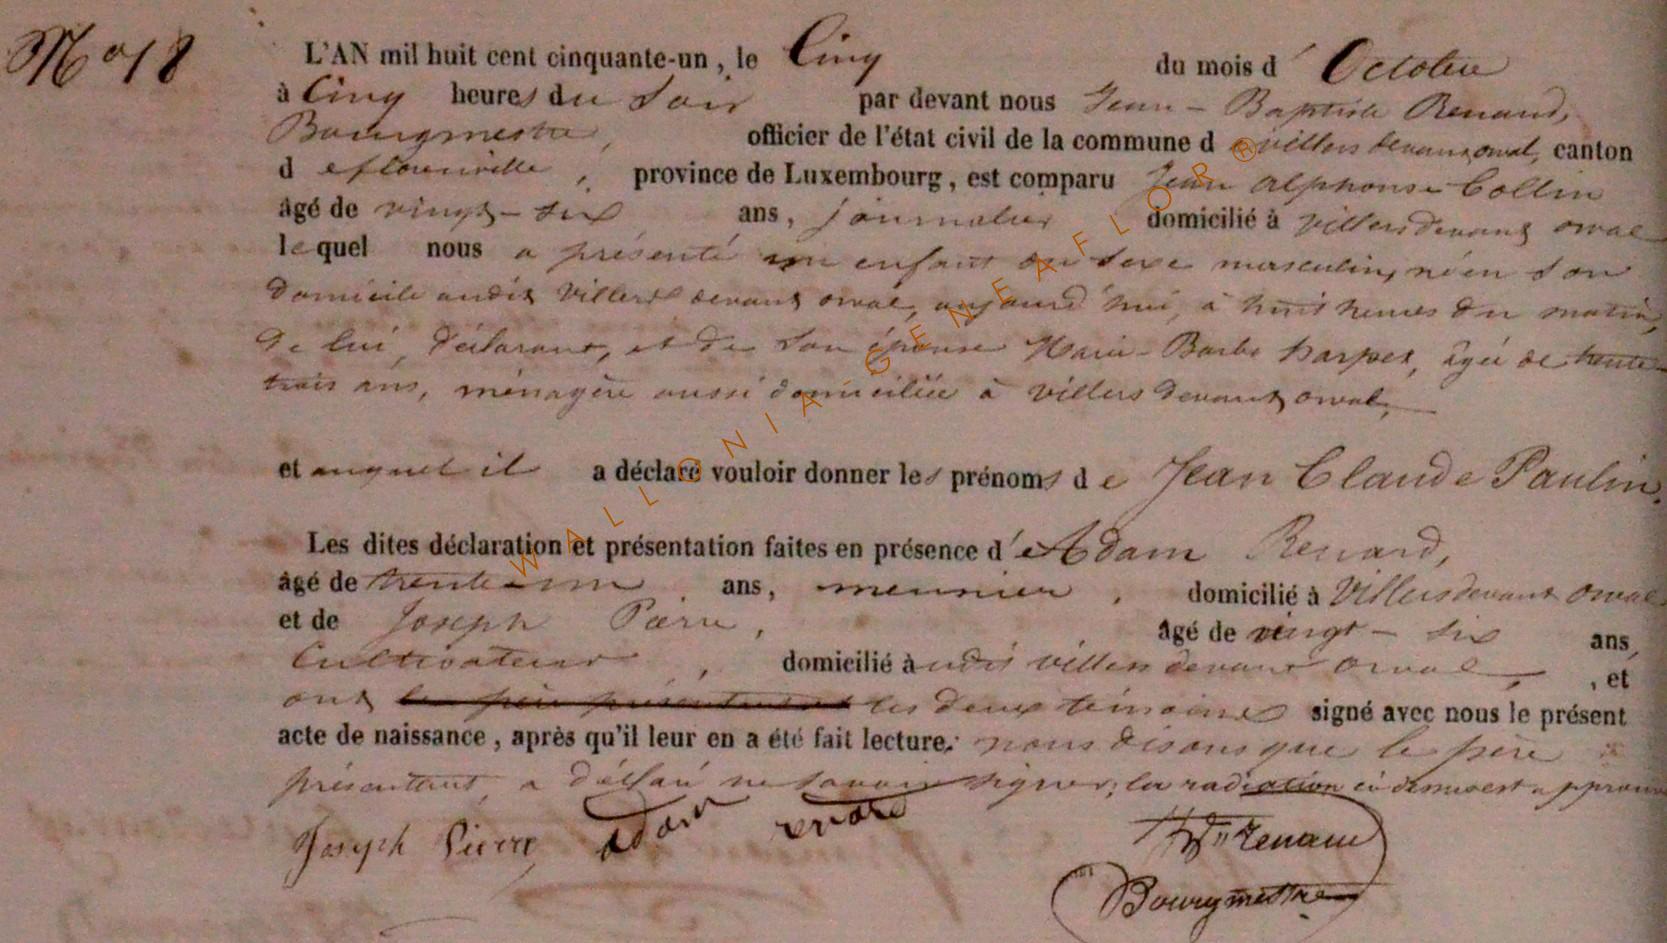 No 18
L'AN mil huit cent cinquante-un, le Cinq du mois d'Octobre
à Cinq heures du Soir par devant nous Jean-Baptiste Renaud,
Bourgmestre, officier de l'état civil de la commune de villers devant orval, canton
de florenville, province de Luxembourg, est comparu Jean Alphonse Collin
âgé de vingt-six ans, journalier domicilié à Villers devant orval
lequel nous a présenté un enfant du sexe masculin, né en son
domicile audit Villers devant orval, aujourd'hui, à huit heures du matin,
De lui, déclarant, et de son épouse Marie-Barbe harpes, âgée de trente-
trois ans, ménagère aussi domiciliée à villers devant orval,
et auquel il a déclaré vouloir donner les prénoms de Jean Claude Paulin.
Les dites déclaration et présentation faites en présence d'Adam Renard,
âgé de trente-un ans, meunier, domicilié à Villers devant orval
et de Joseph Pierre, âgé de vingt-six ans,
Cultivateur, domicilié à udit villers devant orval, , et
ont le père présentant les deux témoins signé avec nous le présent
acte de naissance, après qu'il leur en a été fait lecture. nous disons que le père
présentant, a déclaré ne savoir signer; la radiation ci dessus est approuv
Joseph Pierre, adam renard
Renaud
Bourgmestre
WALLONIA-GÉNÉAFLOR®